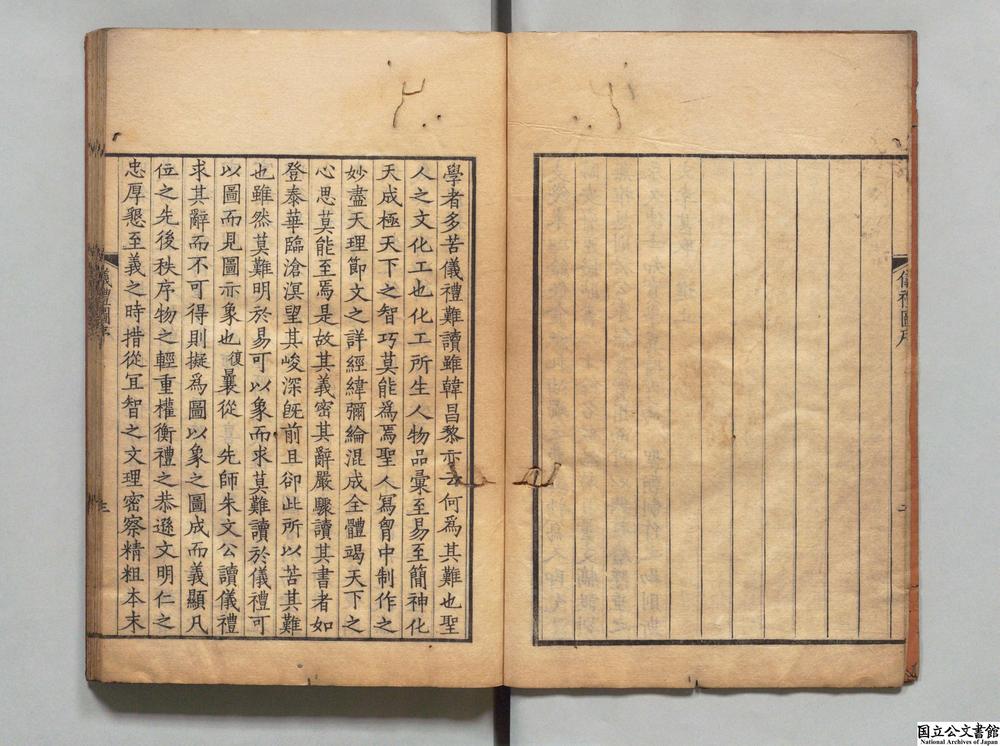 儀禮圖序
學者多苦儀禮難讀雖韓昌黎亦云何爲其難也聖
人之文化工也化工所生人物品彙至易至簡神化
天成極天下之智巧莫能爲焉聖人寫胷中制作之
妙盡天理節文之詳經緯彌綸混成全體竭天下之
心思莫能至焉是故其義密其辭嚴驟讀其書者如
登泰華臨滄溟望其峻深旣前且卻此所以苦其難
也雖然莫難明於易可以象而求莫難讀於儀禮可
以圖而見圖亦象也復曩從 先師朱文公讀儀禮
求其辭而不可得則擬爲圖以象之圖成而義顯凡
位之先後秩序物之輕重權衡禮之恭遜文明仁之
忠厚懇至義之時措從冝智之文理密察精粗本末
儀禮圖序
三
国立公文書館
National Archives of Japan